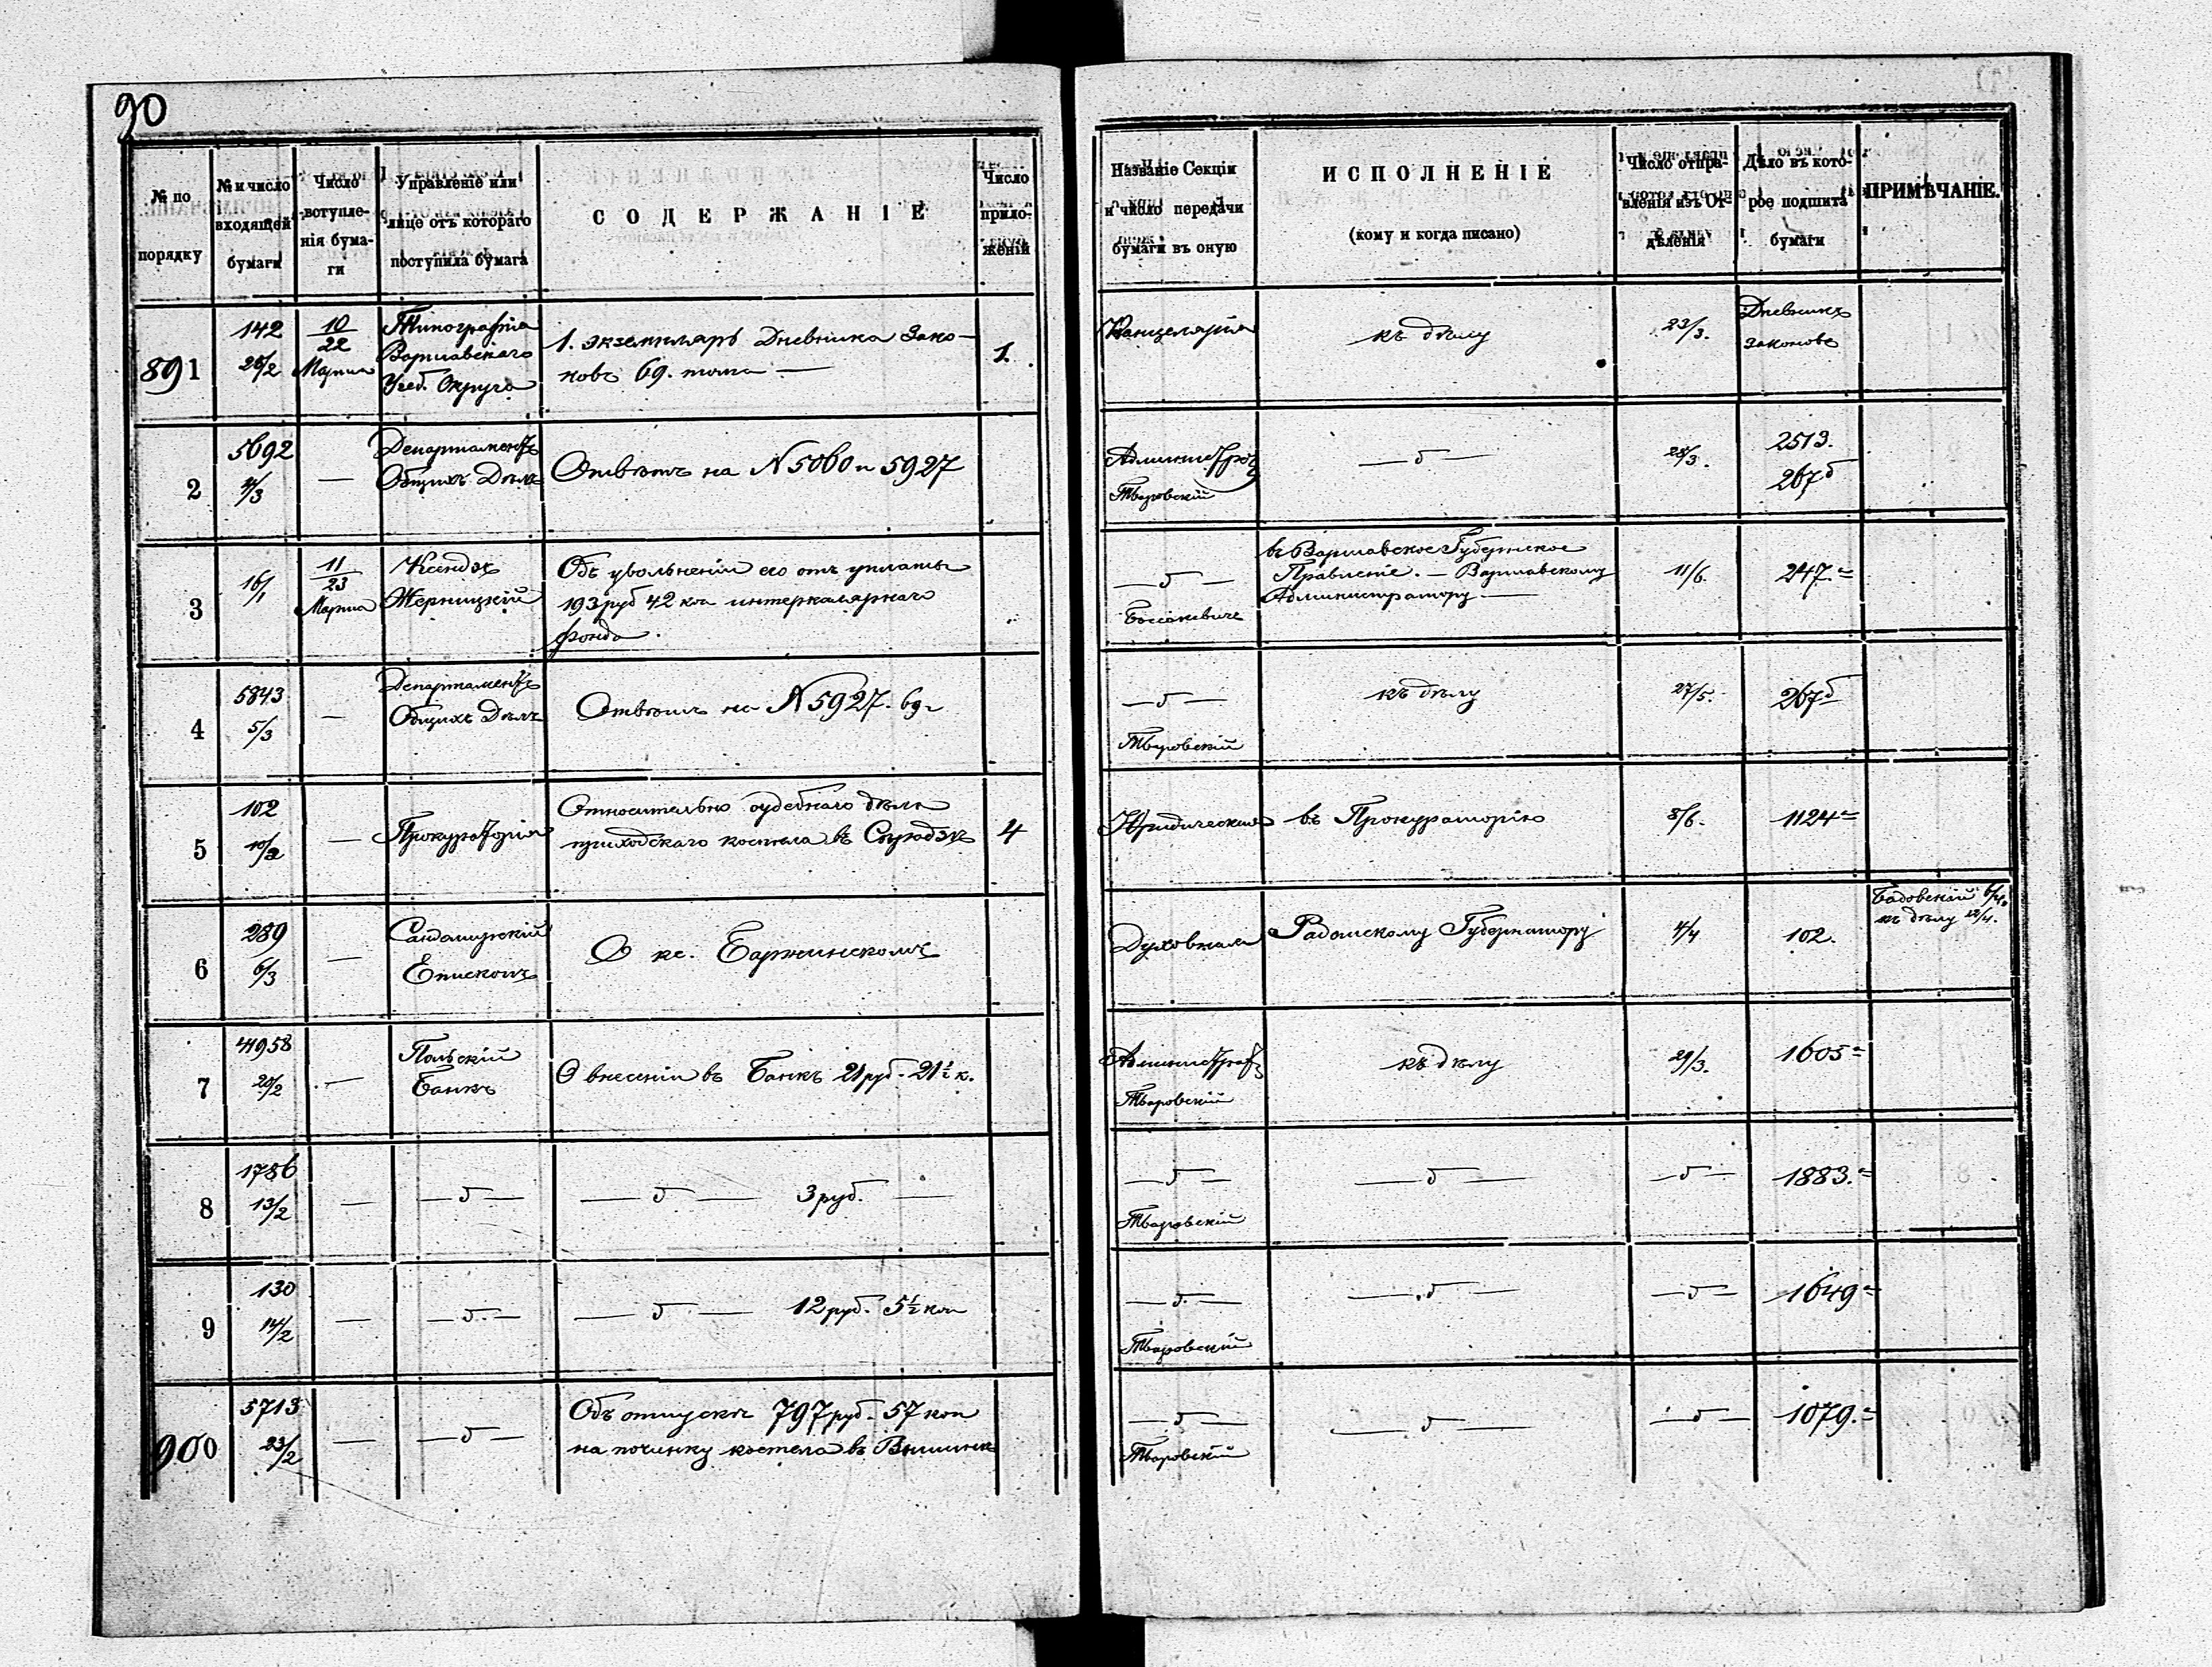 90
№ по порядку
№ и число входящей бумаги
Число вступле-
нія бума-
ги
Управленіе или
лице отъ котораго
поступила бумага
СОДЕРЖАНІЕ
Число
прило-
женій
Названіе Секціи
и число передачи
бумаги въ оную
ИСПОЛНЕНІЕ
(кому и когда писано)
Число отпра-
вленія изъ От-
дѣленія
Дѣло въ кото-
рое подшита
бумаги
ПРИМѢЧАНІЕ.
891
142
10/22
Марта
Типографія
Варшавскаго
Учеб. Округа
1. экземпляръ Дневника Зако-
новъ 69. тома —
1.
Канцелярія
къ дѣлу
23/3.
Дневникъ
законовъ
2
5692
4/3
—
Департаментъ
Общихъ Дѣлъ
Отвѣтъ на N 5060 и 5927
Тваровскій
— δ —
28/3.
2513.
267δ
3
16/1
11/23
Марта
Ксендзъ
Жерницкій
Объ увольненіи его отъ уплаты
193 руб 42 коп интеркалярнаго
фонда.
— δ —
въ Варшавское Губернское
Правленіе. — Варшавскому
Администратору —
11/6.
247.=
4
5843
5/3
—
Департаментъ
Общихъ Дѣлъ
Отвѣтъ на N 5927. 69 г
— δ —
Тваровскій
къ дѣлу
27/5.
267δ
5
102
10/2
—
Прокураторія
Относительно судебнаго дѣла
приходскаго костела въ
4
Юридическая
въ Прокураторію
8/6.
1124=
6
289
6/3
—
Сандомирскій
Епископъ
О кс.
Духовная
Радомскому Губернатору
4/4
102.
Бадовскій 6/4.
къ дѣлу 12/4.
7
41958
20/2
—
Польскій
Банкъ
О внесеніи въ Банкъ 21 руб. 21½ к.
Тваровскій
къ дѣлу
29/3.
1605=
8
1786
13/2
—
— δ —
— δ — 3 руб. —
— δ —
Тваровскій
— δ —
— δ —
1883.=
9
130
14/2
—
— δ. —
— δ. — 12 руб. 5½ коп
— δ. —
Тваровскій
— δ —
— δ —
1649=
900
5713
23/2
—
— δ —
Объ отпускѣ 797 руб. 57 коп
на починку костела въ
— δ —
Тваровскій
— δ —
— δ —
1079.=